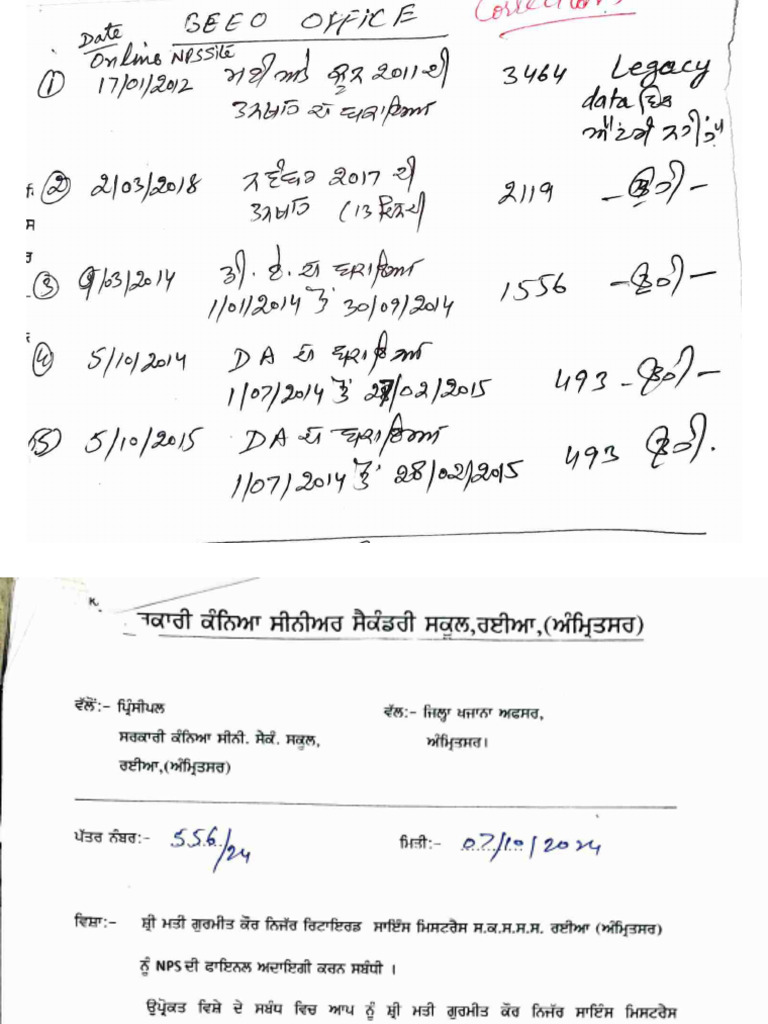 BEEO OFFICE
Corrections
Date
Online NPS Site
① 17/01/2012 ਮਈ ਅਤੇ ਜੂਨ 2011 ਦੀ 3464 Legacy
ਤਨਖਾਹ ਦਾ ਬਕਾਇਆ data ਵਿੱਚ
ਐਂਟਰੀ ਨਹੀਂ ਹੈ
② 2/03/2018 ਨਵੰਬਰ 2017 ਦੀ 2119 -ਉਹੀ-
ਤਨਖਾਹ (13 ਦਿਨ ਦੀ
③ 9/03/2014 ਡੀ. ਏ. ਦਾ ਬਕਾਇਆ 1556 -ਉਹੀ-
1/01/2014 ਤੋਂ 30/09/2014
④ 5/10/2014 DA ਦਾ ਬਕਾਇਆ 493 -ਉਹੀ-
1/07/2014 ਤੋਂ 28/02/2015
⑤ 5/10/2015 DA ਦਾ ਬਕਾਇਆ 493 ਉਹੀ.
1/07/2014 ਤੋਂ 28/02/2015
ਰਕਾਰੀ ਕੰਨਿਆ ਸੀਨੀਅਰ ਸੈਕੰਡਰੀ ਸਕੂਲ,ਰਈਆ,(ਅੰਮ੍ਰਿਤਸਰ)
ਵੱਲੋਂ:- ਪ੍ਰਿੰਸੀਪਲ ਵੱਲ:- ਜਿਲ੍ਹਾ ਖਜਾਨਾ ਅਫਸਰ,
ਸਰਕਾਰੀ ਕੰਨਿਆ ਸੀਨੀ. ਸੇਕੰ. ਸਕੂਲ, ਅੰਮ੍ਰਿਤਸਰ।
ਰਈਆ,(ਅੰਮ੍ਰਿਤਸਰ)
ਪੱਤਰ ਨੰਬਰ:- 556/24 ਮਿਤੀ:- 07/10/2024
ਵਿਸ਼ਾ:- ਸ਼੍ਰੀ ਮਤੀ ਗੁਰਮੀਤ ਕੌਰ ਨਿਜੱਰ ਰਿਟਾਇਰਡ ਸਾਇੰਸ ਮਿਸਟਰੈਸ ਸ.ਕ.ਸ.ਸ.ਸ. ਰਈਆ (ਅੰਮ੍ਰਿਤਸਰ)
ਨੂੰ NPS ਦੀ ਫਾਇਨਲ ਅਦਾਇਗੀ ਕਰਨ ਸਬੰਧੀ ।
ਉਪ੍ਰੋਕਤ ਵਿਸ਼ੇ ਦੇ ਸਬੰਧ ਵਿਚ ਆਪ ਨੂੰ ਸ਼੍ਰੀ ਮਤੀ ਗੁਰਮੀਤ ਕੌਰ ਨਿਜੱਰ ਸਾਇੰਸ ਮਿਸਟਰੈਸ